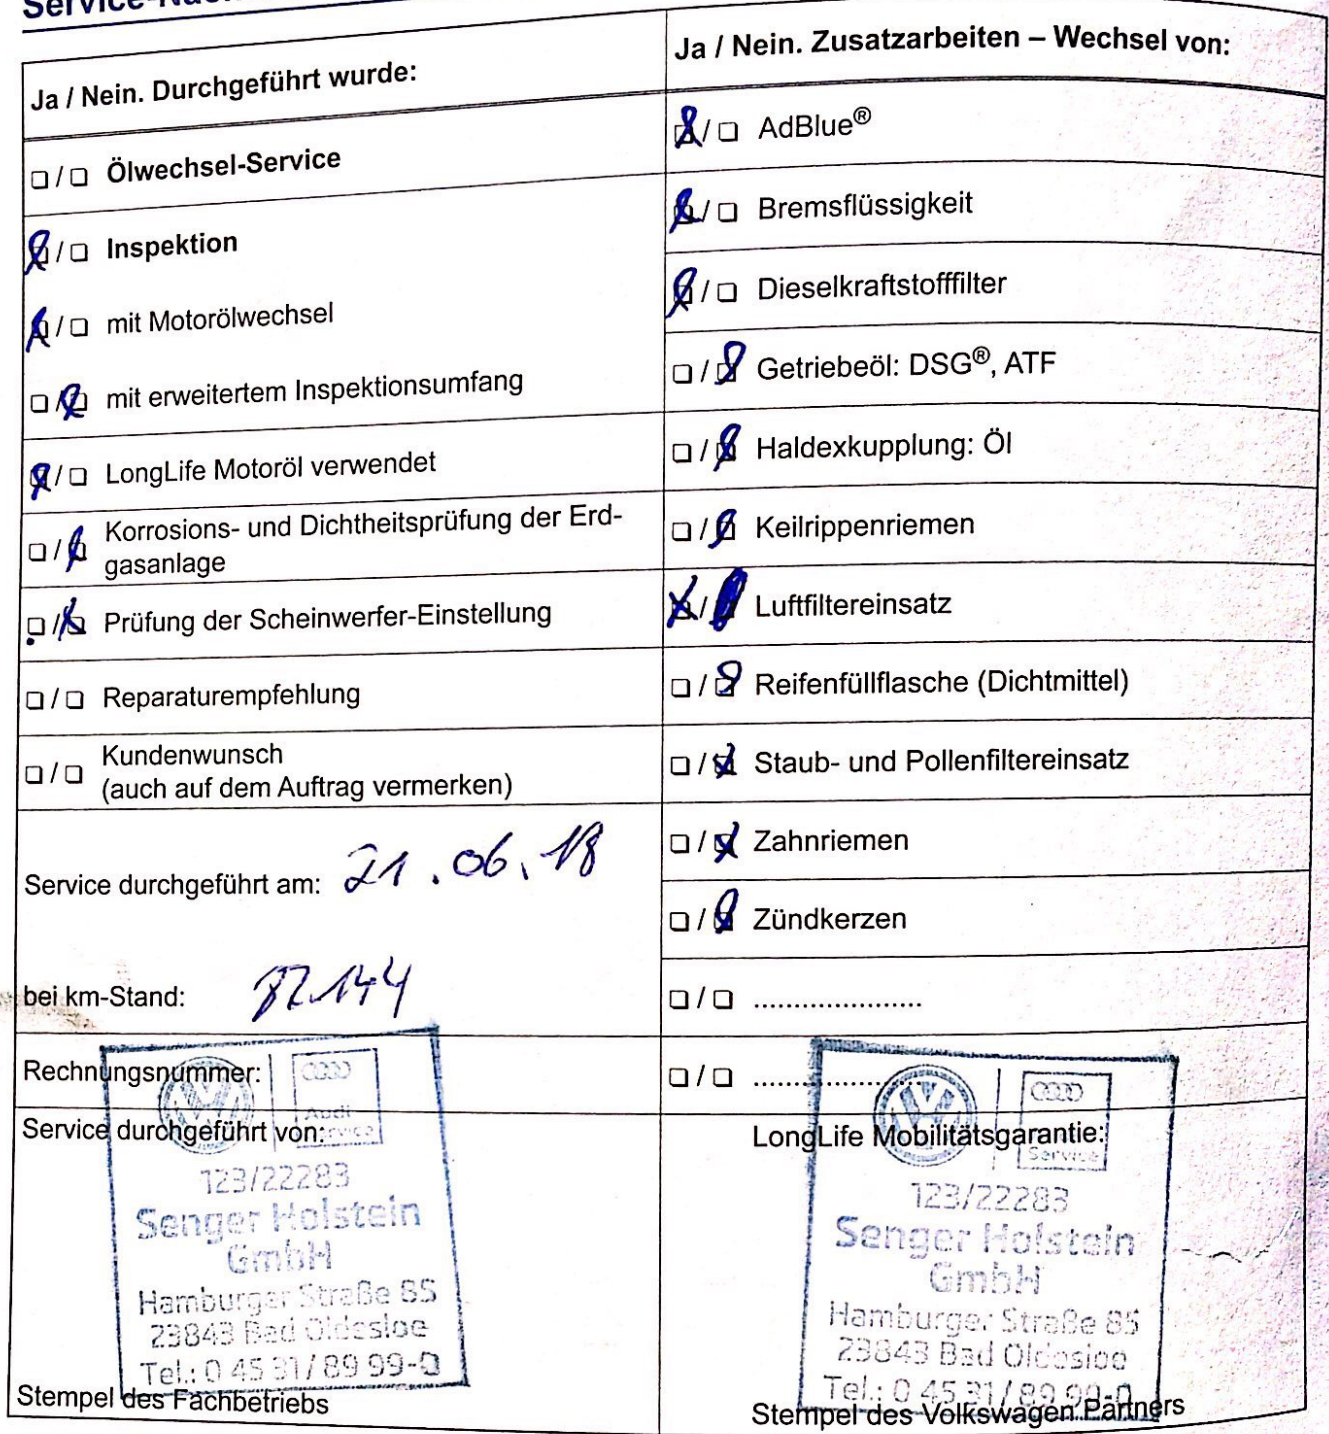 Ja / Nein. Durchgeführt wurde:
❑ / ❑ Ölwechsel-Service
❑ / ❑ Inspektion
❑ / ❑ mit Motorölwechsel
❑ / ❑ mit erweitertem Inspektionsumfang
❑ / ❑ LongLife Motoröl verwendet
❑ / ❑ Korrosions- und Dichtheitsprüfung der Erd-
gasanlage
❑ / ❑ Prüfung der Scheinwerfer-Einstellung
❑ / ❑ Reparaturempfehlung
❑ / ❑ Kundenwunsch
(auch auf dem Auftrag vermerken)
Service durchgeführt am: 21.06.18
bei km-Stand: 82.144
Rechnungsnummer:
Service durchgeführt von:
Audi
Service
123/22283
Senger Holstein
GmbH
Hamburger Straße 85
23843 Bad Oldesloe
Tel.: 0 45 31/89 99-0
Stempel des Fachbetriebs
Ja / Nein. Zusatzarbeiten – Wechsel von:
❑ / ❑ AdBlue®
❑ / ❑ Bremsflüssigkeit
❑ / ❑ Dieselkraftstofffilter
❑ / ❑ Getriebeöl: DSG®, ATF
❑ / ❑ Haldexkupplung: Öl
❑ / ❑ Keilrippenriemen
❑ / ❑ Luftfiltereinsatz
❑ / ❑ Reifenfüllflasche (Dichtmittel)
❑ / ❑ Staub- und Pollenfiltereinsatz
❑ / ❑ Zahnriemen
❑ / ❑ Zündkerzen
❑ / ❑ .....................
❑ / ❑ .....................
LongLife Mobilitätsgarantie:
Service
123/22283
Senger Holstein
GmbH
Hamburger Straße 85
23843 Bad Oldesloe
Tel.: 0 45 31/89 99-0
Stempel des Volkswagen Partners